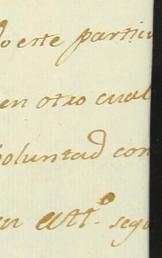 o este particu
en otro cual
voluntad con
n att.º segu